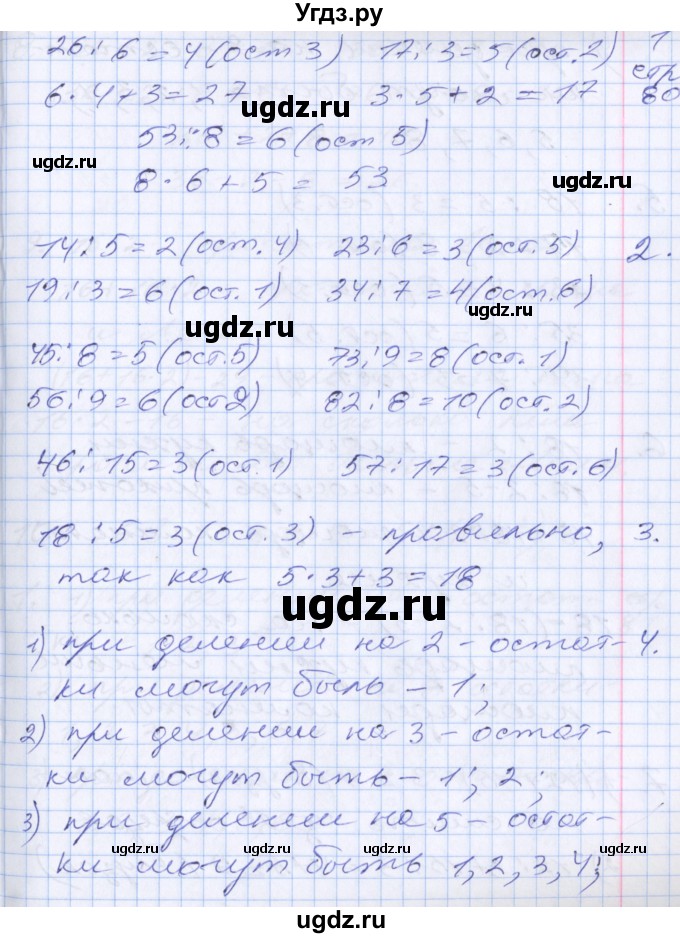 Угдз.ру
26 : 6 = 4 (ост 3) 17 : 3 = 5 (ост. 2) 1
стр
6 · 4 + 3 = 27 3 · 5 + 2 = 17 80
ugdz.ru
53 : 8 = 6 (ост 5)
ugdz.ru
8 · 6 + 5 = 53
ugdz.ru
14 : 5 = 2 (ост. 4) 23 : 6 = 3 (ост. 5) 2.
19 : 3 = 6 (ост. 1) 34 : 7 = 4 (ост. 6)
ugdz.ru
45 : 8 = 5 (ост. 5) 73 : 9 = 8 (ост. 1)
56 : 9 = 6 (ост 2) 82 : 8 = 10 (ост. 2)
ugdz.ru
46 : 15 = 3 (ост. 1) 57 : 17 = 3 (ост. 6)
18 : 5 = 3 (ост. 3) – правильно, 3.
так как 5 · 3 + 3 = 18
ugdz.ru
1) при делении на 2 – остат- 4.
ки могут быть – 1;
2) при делении на 3 – остат-
ки могут быть – 1; 2;
3) при делении на 5 – остат-
ugdz.ru ugdz.ru ugdz.ru
ки могут быть 1, 2, 3, 4;
ugdz.ru